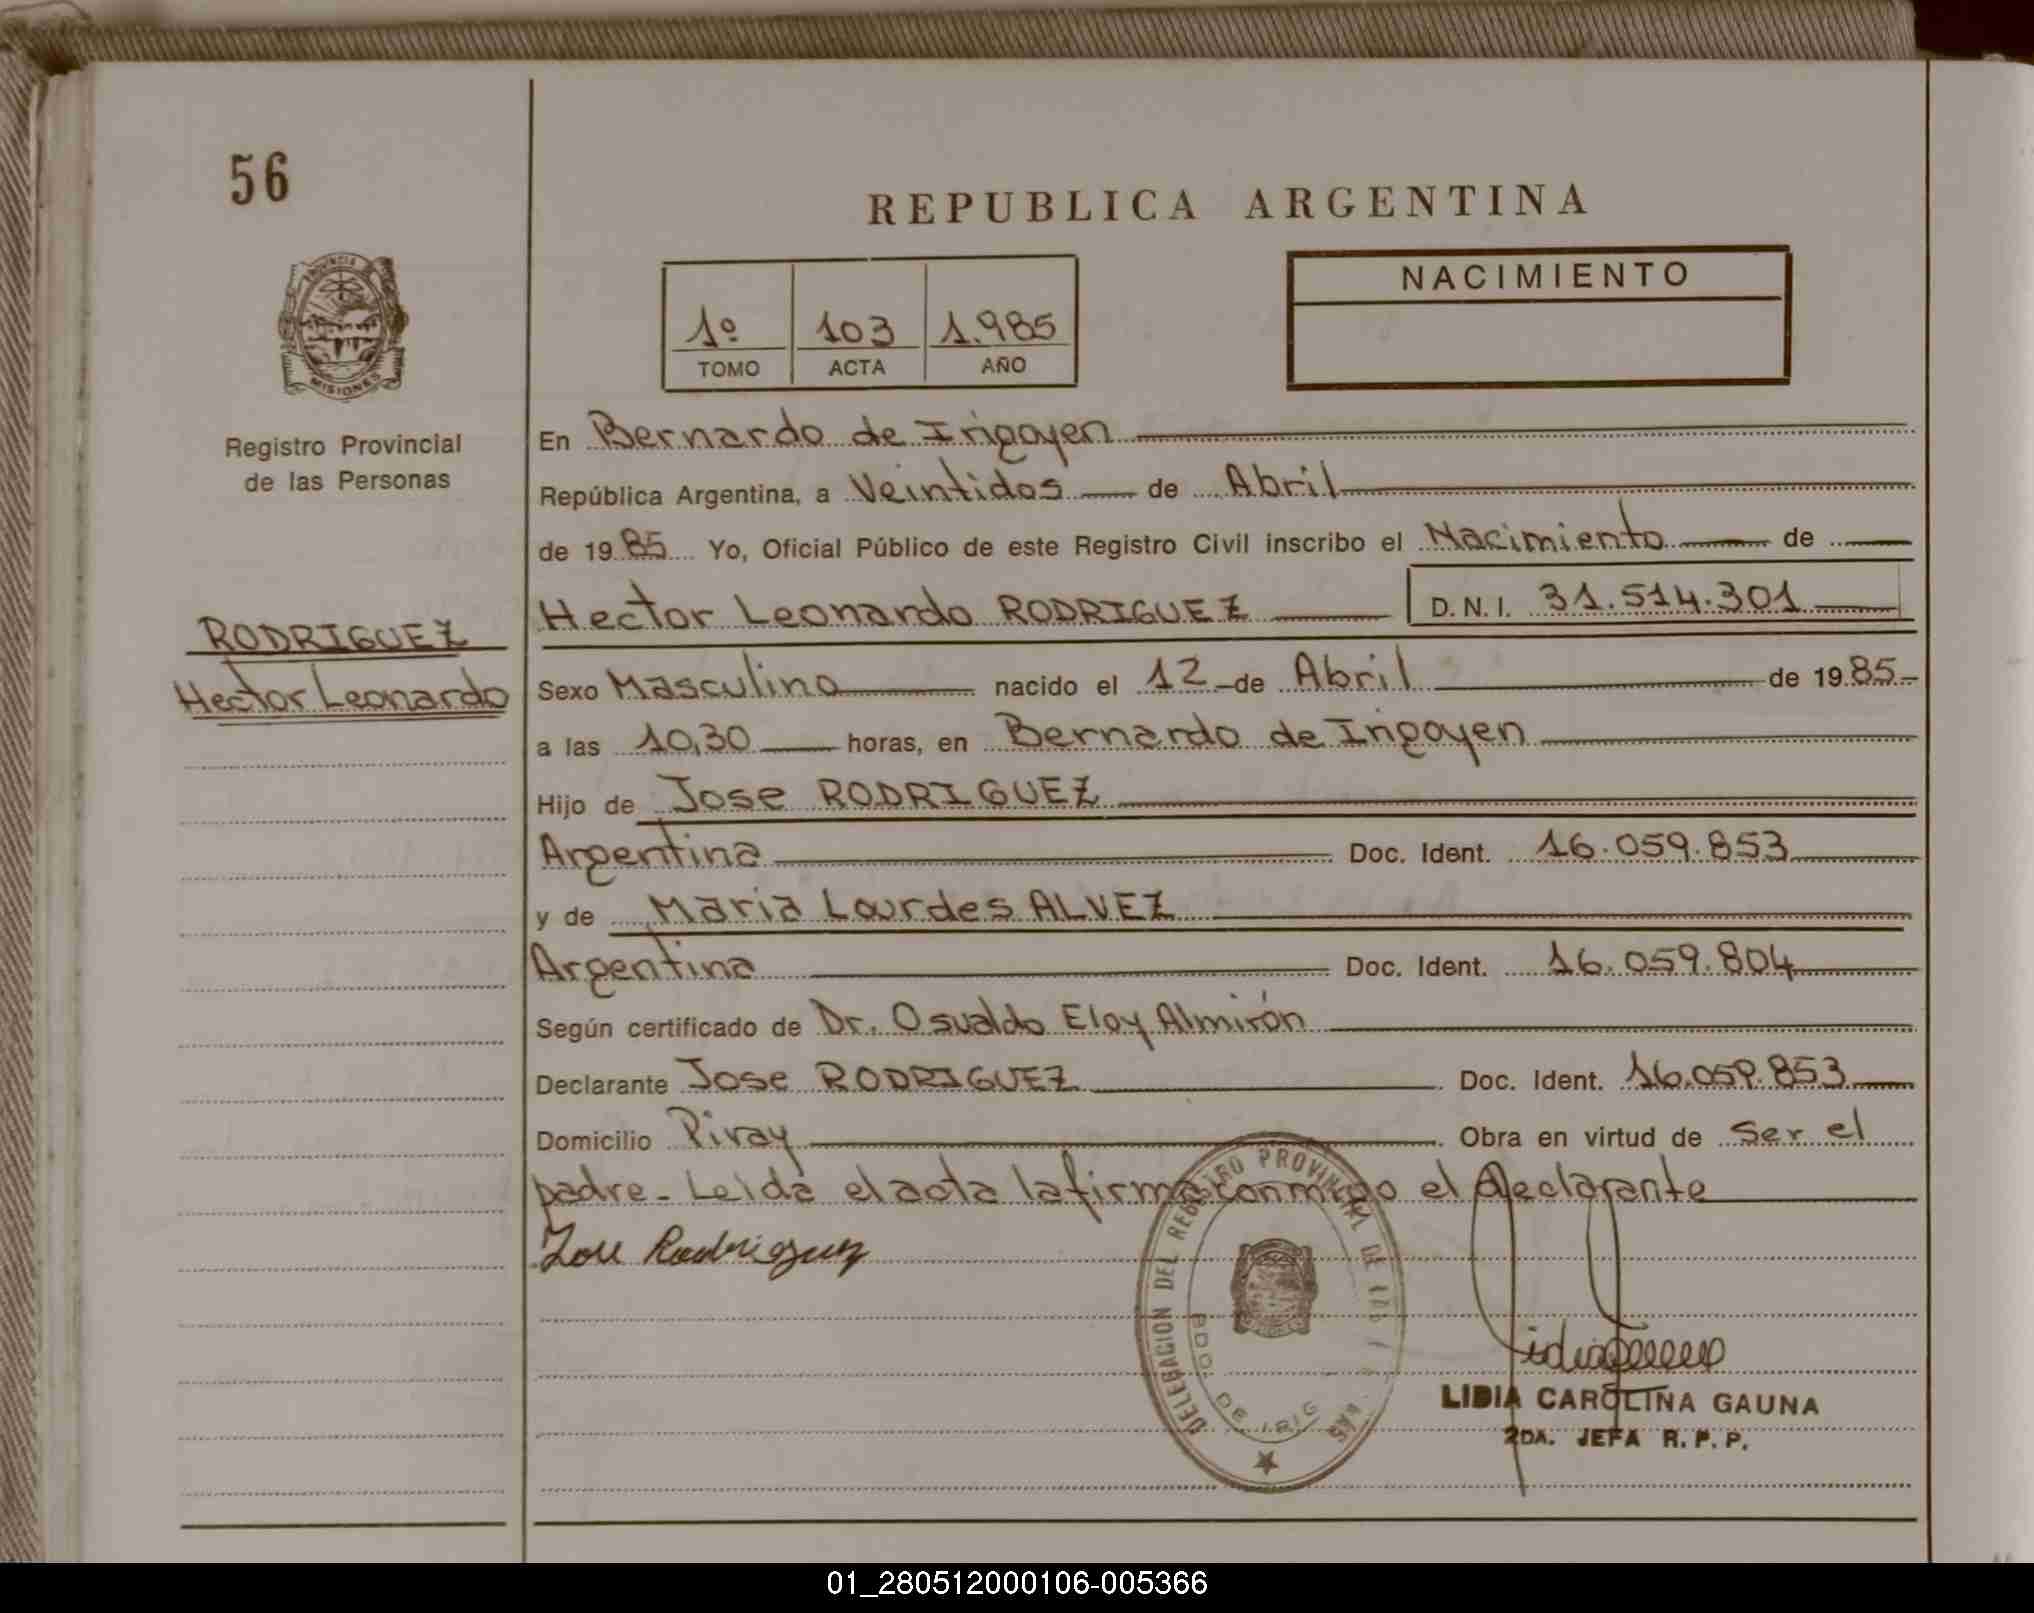 56
REPUBLICA ARGENTINA
PROVINCIA DE
MISIONES
Registro Provincial
de las Personas
1º 103 1.985
TOMO ACTA AÑO
NACIMIENTO
En Bernardo de Irigoyen
República Argentina, a Veintidos de Abril
de 1985 Yo, Oficial Público de este Registro Civil inscribo el Nacimiento de
Hector Leonardo RODRIGUEZ D.N.I. 31.514.301
RODRIGUEZ
Hector Leonardo
Sexo Masculino nacido el 12 de Abril de 1985
a las 10,30 horas, en Bernardo de Irigoyen
Hijo de Jose RODRIGUEZ
Argentina Doc. Ident. 16.059.853
y de Maria Lourdes ALVEZ
Argentina Doc. Ident. 16.059.804
Según certificado de Dr. Osvaldo Eloy Almirón
Declarante Jose RODRIGUEZ Doc. Ident. 16.059.853
Domicilio Piray Obra en virtud de Ser el
padre - Leida el acta la firma conmigo el declarante
Jose Rodriguez
DELEGACION DEL REGISTRO PROVINCIAL DE LAS
BDO. DE IRIG
LIDIA CAROLINA GAUNA
2DA. JEFA R.P.P.
01_280512000106-005366